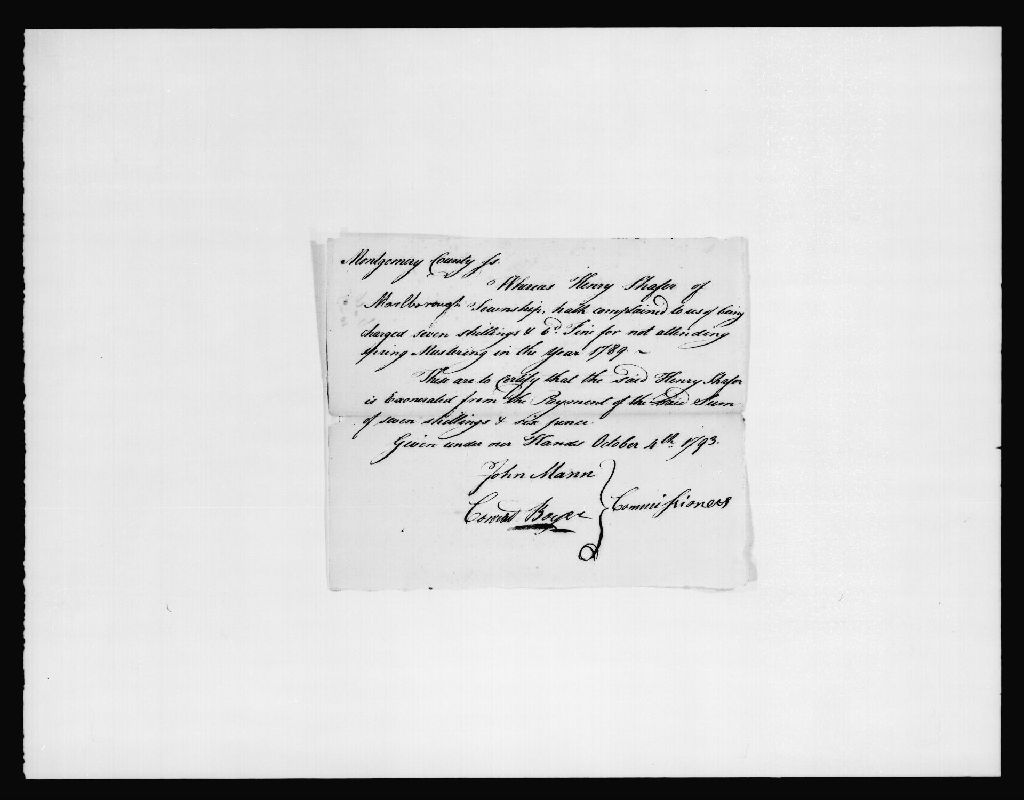 Montgomery County ss.
Whereas Henry Shafer of
Marlborough Township, hath complained to us of being
charged seven shillings & 6d Fine for not attending
spring Mustering in the Year 1789 ~
These are to Certify that the said Henry Shafer
is Exonerated from the Payment of the said Sum
of seven shillings & six pence
Given under our Hands October 4th 1793.
John Mann
Conrad Boyer
Commissioners